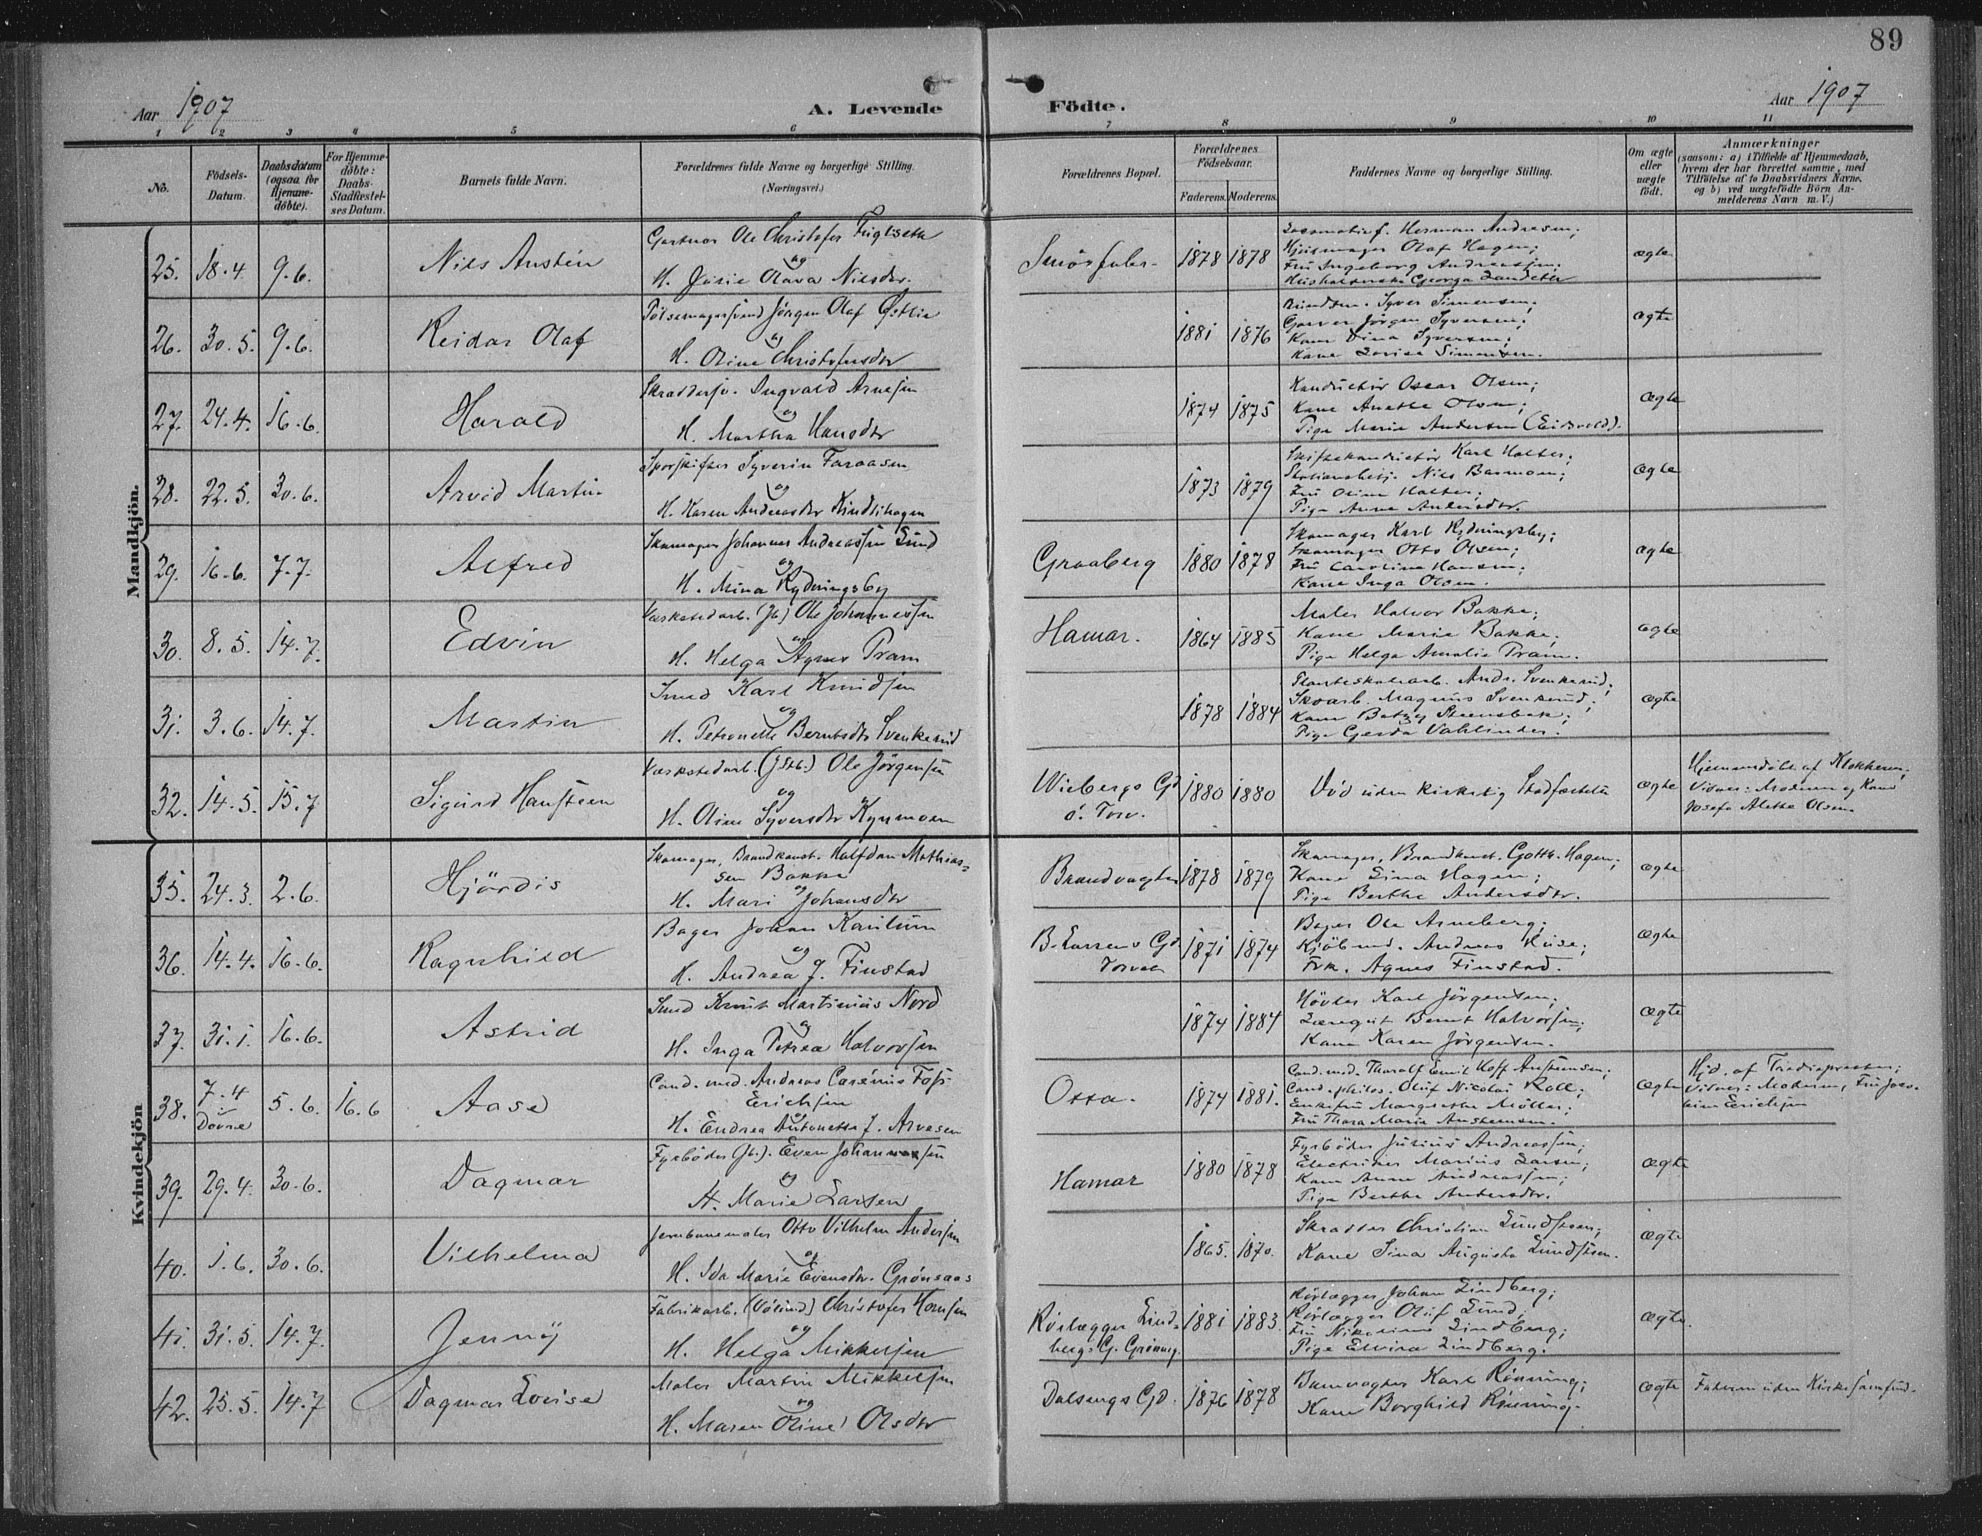 89
Aar 1907 A. Levende Födte. Aar 1907
1 2 3 4 5 6 7 8 9 10 11
No.
Födsels-
Datum.
Daabsdatum
(ogsaa for
Hjemme-
döbte).
For Hjemme-
döbte:
Daabs-
Stadfæstel-
ses Datum.
Barnets fulde Navn.
Forældrenes fulde Navne og borgerlige Stilling.
(Næringsvei.)
Forældrenes Bopæl.
Forældrenes
Födselsaar.
Faderens. Moderens.
Faddernes Navne og borgerlige Stilling.
Om ægte
eller
uægte
födt.
Anmærkninger
(saasom: a) i Tilfælde af Hjemmedaab,
hvem der har forrettet samme, med
Tilföielse af to Daabsvidners Navne,
og b) ved uægtefödte Börn An-
melderens Navn m. V.)
Mandkjön.
25. 18.4. 9.6. Nils Austin
Gartner Ole Christofer
og
H. Julie Olava Nilsdr.
1878 1878
Hjulmager Olaf Hagen;
Fru Ingeborg Andreassen;
ægte
26. 30.5. 9.6. Reidar Olaf
Pölsemagersvend Jörgen Olaf Østlie
og
H. Oline Christofersdr
1881 1876
Syver Simensen;
Garver Jörgen Syversen;
Kone Lina Syversen;
Kone Lovise Simensen.
ægte
27. 24.4. 16.6. Harald
Skræddersv. Ingvald Arnesen
og
H. Martha Hansdr
1874 1875
Konductör Oscar Olsen;
Kone Anethe Olsen;
Pige Marie Andersen (Eidsvold).
ægte
28. 22.5. 30.6. Arvid Martin
Sporskifter Syverin Faraasen
og
H. Karen Andreasdr Kindlihagen
1873 1879
Skiftekonductör Karl Holter;
Stationsbetj. Nils
Fru Oline Holter;
Pige Anne Andersdr.
ægte
29. 16.6. 7.7. Alfred
Skomager Johannes Andreassen Lund
og
H. Mina Rydningsby
Graaberg 1880 1878
Skomager Karl Rydningsby;
Skomager Otto Olsen;
Fru Caroline Hansen;
Kone Inga Olsen.
ægte
30. 8.5. 14.7. Edvin
Værkstedarb. (Jb.) Ole Johannessen
og
H. Helga Agnes Pram
Hamar. 1864 1885
Maler Halvor Bakke;
Kone Marie Bakke;
Pige Helga Amalie Pram.
ægte
31. 3.6. 14.7. Martin
Smed Karl Knudsen
og
H. Petronelle Berntsdr Svenkerud
1878 1884
Planteskolearb. Andr. Svenkerud;
Skoarb. Magnus Svenkerud;
Kone Betzy Steensbak;
Pige Gerda Vahlinder.
ægte
32. 14.5. 15.7 Sigurd Hansteen
Værkstedarb. (J.stb.) Ole Jörgensen
og
H. Oline Syversdr
Wiebergs Gd
ö. Torv.
1880 1880
Död uden kirkelig Stadfæstelse
ægte
Hjemmedöbt af Klokkeren;
Vidner: Moderen og Kone
Josefa Alette Olsen.
Kvindekjön
35. 24.3. 2.6. Hjördis
Skomager, Brandkonst. Halfdan Mathias-
sen Bakke
og
H. Mari Johansdr
Brandvagten 1878 1879
Skomager, Brandkonst. Gotth. Hagen;
Kone Lina Hagen;
Pige Berthe Andersdr.
ægte
36. 14.4. 16.6. Ragnhild
Bager Johan Kaulum
og
H. Andrea J. Finstad
B. Larsens Gd.
Torvet
1871 1874
Bager Ole Arneberg;
Kjöbmd. Andreas Kise;
Frk. Agnes Finstad.
ægte
37. 31.1. 16.6. Astrid
Smed Knut Martinius Nord
og
H. Inga Petrea Halvorsen
1874 1884
Hövler Karl Jörgensen;
Bernt Halvorsen;
Kone Karen Jörgensen.
ægte
38. 7.4 5.6. 16.6 Aase
Dovre
Cand. med. Andreas Casenius Foss
Erichsen
og
H. Endrea Antonette J. Arvesen
Otta. 1874 1881.
Cand. med. Tharalf Emil Hoff Austeensen;
Cand. philos. Oluf Nicolai Roll;
Enkefru Margrethe Möller;
Fru Thora Marie Austeensen.
ægte
Hjd. af
Vidner: Moderen, Fru
Erichsen
39. 29.4. 30.6. Dagmar
Fyrböder (Jb.) Even Johannessen
og
H. Marie Larsen
Hamar 1880 1878
Fyrböder Julius Andreassen;
Electriker Marius Larsen;
Kone Anna Andreassen;
Pige Berthe Andersdr.
ægte
40. 1.6. 30.6. Vilhelma
Jernbanemaler Otto Vilhelm Andersen
og
H. Ida Marie Evensdr. Grönsaas
1865. 1870.
Skrædder Christian Lundsteen;
Kone Lina Augusta Lundsteen.
ægte
41. 31.5. 14.7. Jenny
Fabrikarb. (Völund) Christofer Hansen
og
H. Helga Mikkelsen
Rörlægger Lind-
bergs G. Grönneg.
1881 1883
Rörlægger Johan Lindberg;
Rörlægger Oluf Lund;
Fru Nikoline Lindberg;
Pige Elvira Lindberg.
ægte.
42. 25.5. 14.7 Dagmar Lovise
Maler Martin Mikkelsen
og
H. Maren Oline Olsdr
Dalsengs Gd. 1876 1878
Banevogter Karl Rönning;
Kone Borghild Rönning.
ægte
Faderen uden Kirkesamfund.